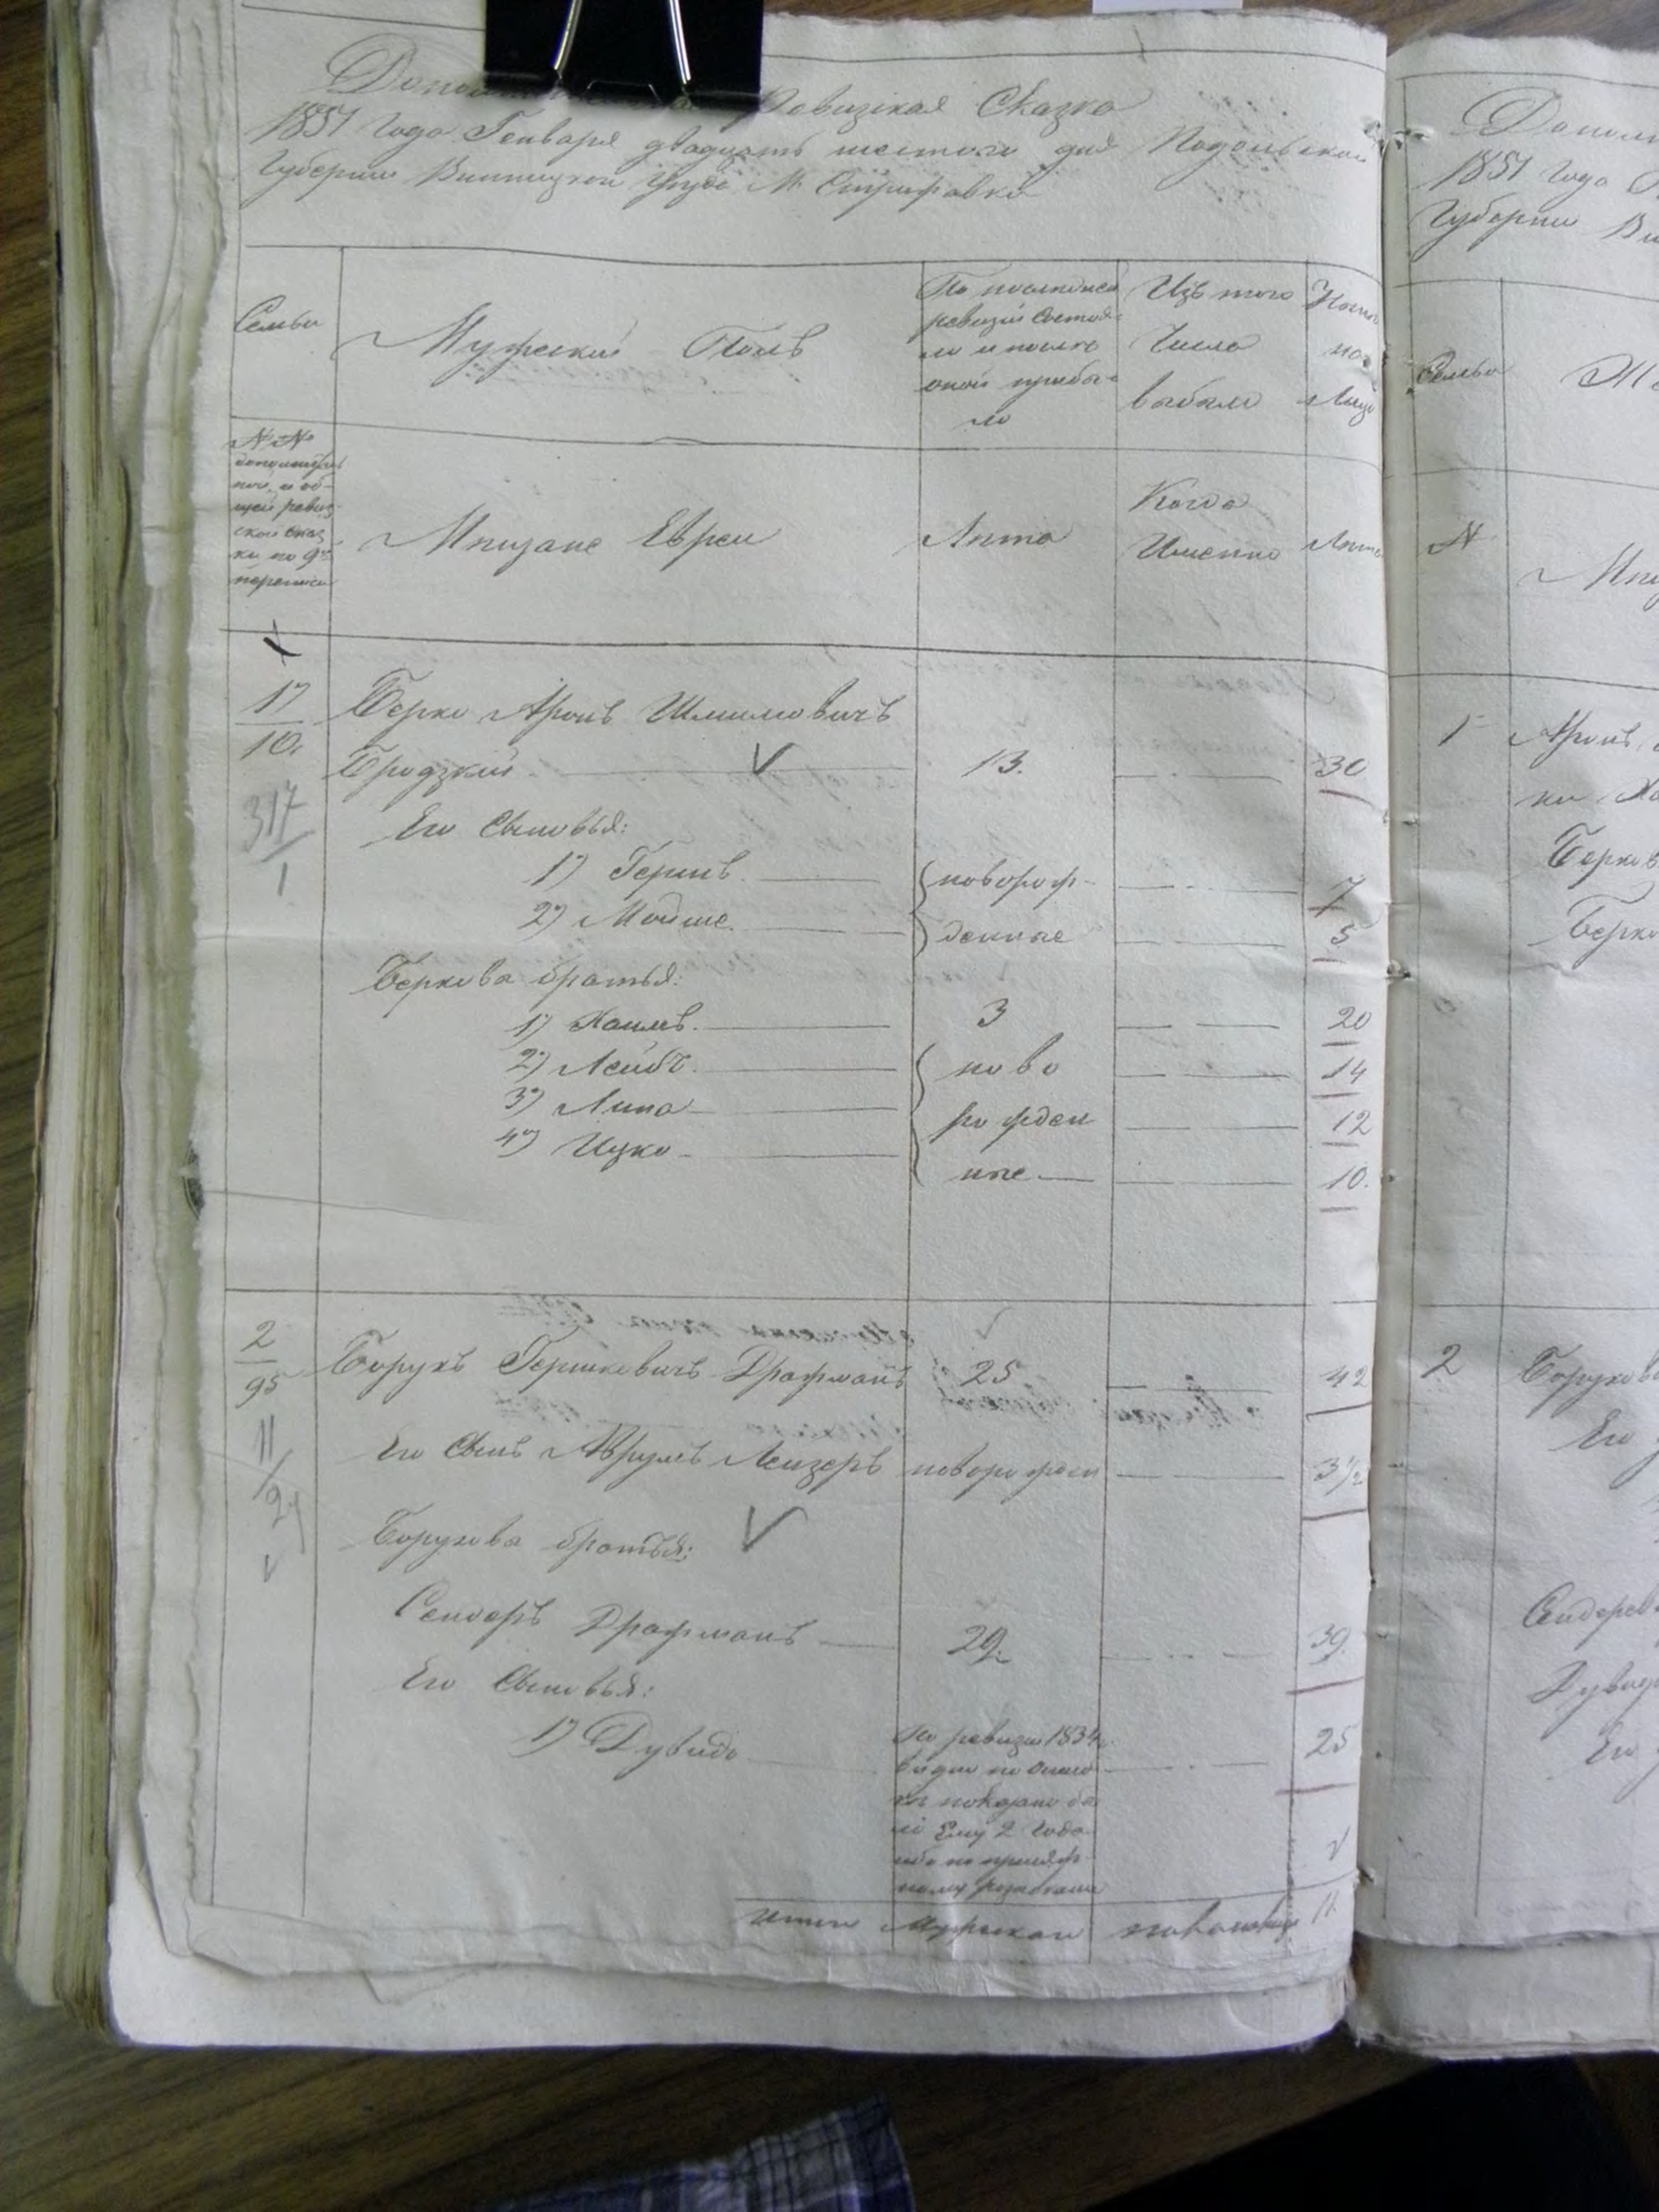 Ревизская Сказка
1851 Года Генваря двадцать шестого дня Подольской
Губернии Винницкой уезда М. Стрижавки
Семьи
Мужеский Полъ
По последней ревизии состояло и после оной прибыло
Изъ того Числа выбыло
Ныне на Лицо
№№ дополнительной и общей ревизской сказки по 9й переписи
Мещане Евреи
Лета
Когда Именно
Лета
1)
10.
317
1
Берко Аронъ Шмилиовичъ
Бродзкий. 13. 30
Его Сыновья:
1) Гершъ. новорож- 7
2) Мойше. денные 5
Беркова братья:
1) Хаимъ. 3 20
2) Лейбъ. ново 14
3) Липа рожден 12
4) Ицко ные 10.
2
95
11
24
Борухъ Гершковичъ Драхманъ 25 42
Его Сынъ Аврумъ Лейзеръ новорожден 3½
Борухова братья:
Сендеръ Драхманъ 29. 39.
Его Сыновья:
1) Дувидъ По ревизии 1834 25
показано
Ему 2 года
Итого Мужеска на лицо 11.
1851 Года
Губернии Ви
Семья
Ме
№
Мещ
1
Аронъ
Берков
Берко
2
Борухов
Его
Сендерев
Дувид
Его